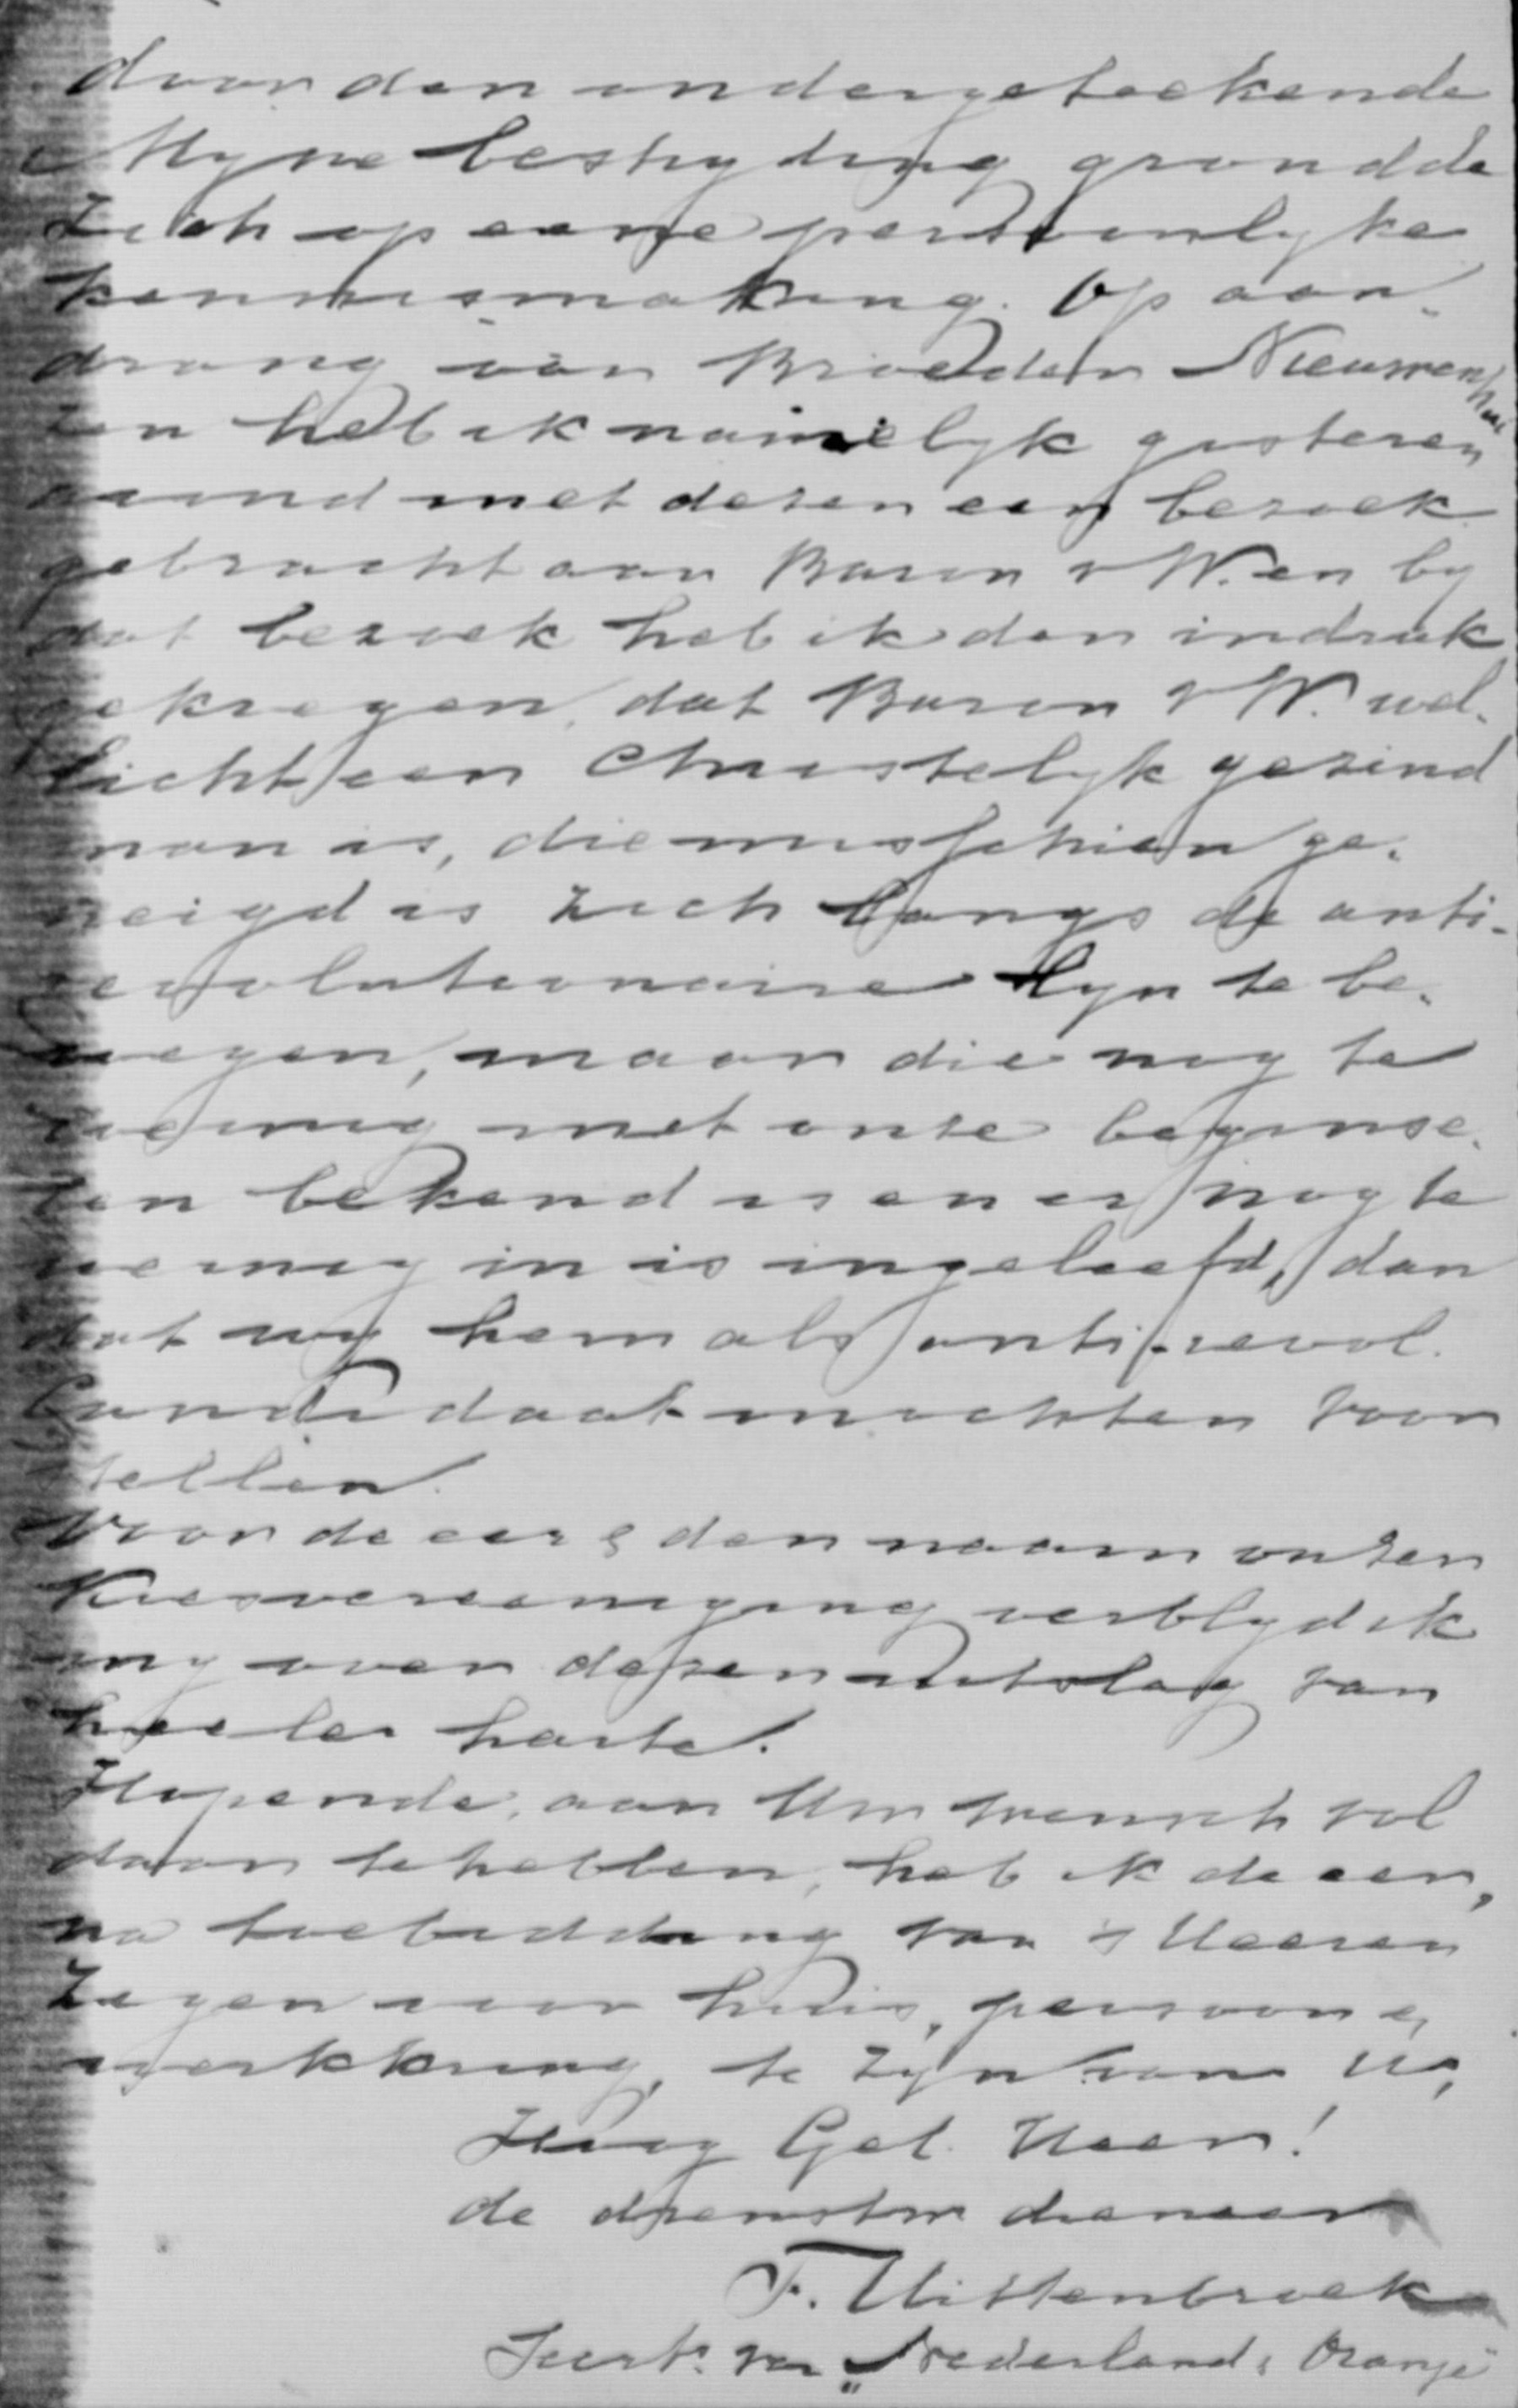 door den ondergeteekende
Myne bestryding grondde
zich op eene persoonlyke
kennismaking. Op aan-
drang van Broeder Nieuwenhui
zen heb ik namelyk gisteren
avond met dezen een bezoek
gebracht aan Baron v W. en by
dat bezoek heb ik den indruk
gekregen, dat Baron v W. wel-
licht een Christelyk gezind
man is, die misschien ge-
neigd is zich langs de anti-
revolutionaire lyn te be-
wegen, maar die nog te
weinig met onze beginse-
len bekend is en er nog te
weinig in is ingeleefd, dan
dat wy hem als anti-revol.
Candidaat mochten voor
stellen.
Voor de eer & den naam onzer
Kiesvereeniging verblyd ik
my over dezen uitslag van
heeler harte.
Hopende, aan Uw wensch vol
daan te hebben, heb ik de eer,
na toebidding van 's Heeren
Zegen voor huis, persoon en
werkkring, te zyn van U,
Hoog Gel. Heer!
de dienstw dienaar
F. Uittenbroek
Secrt. van „Nederland & Oranje"